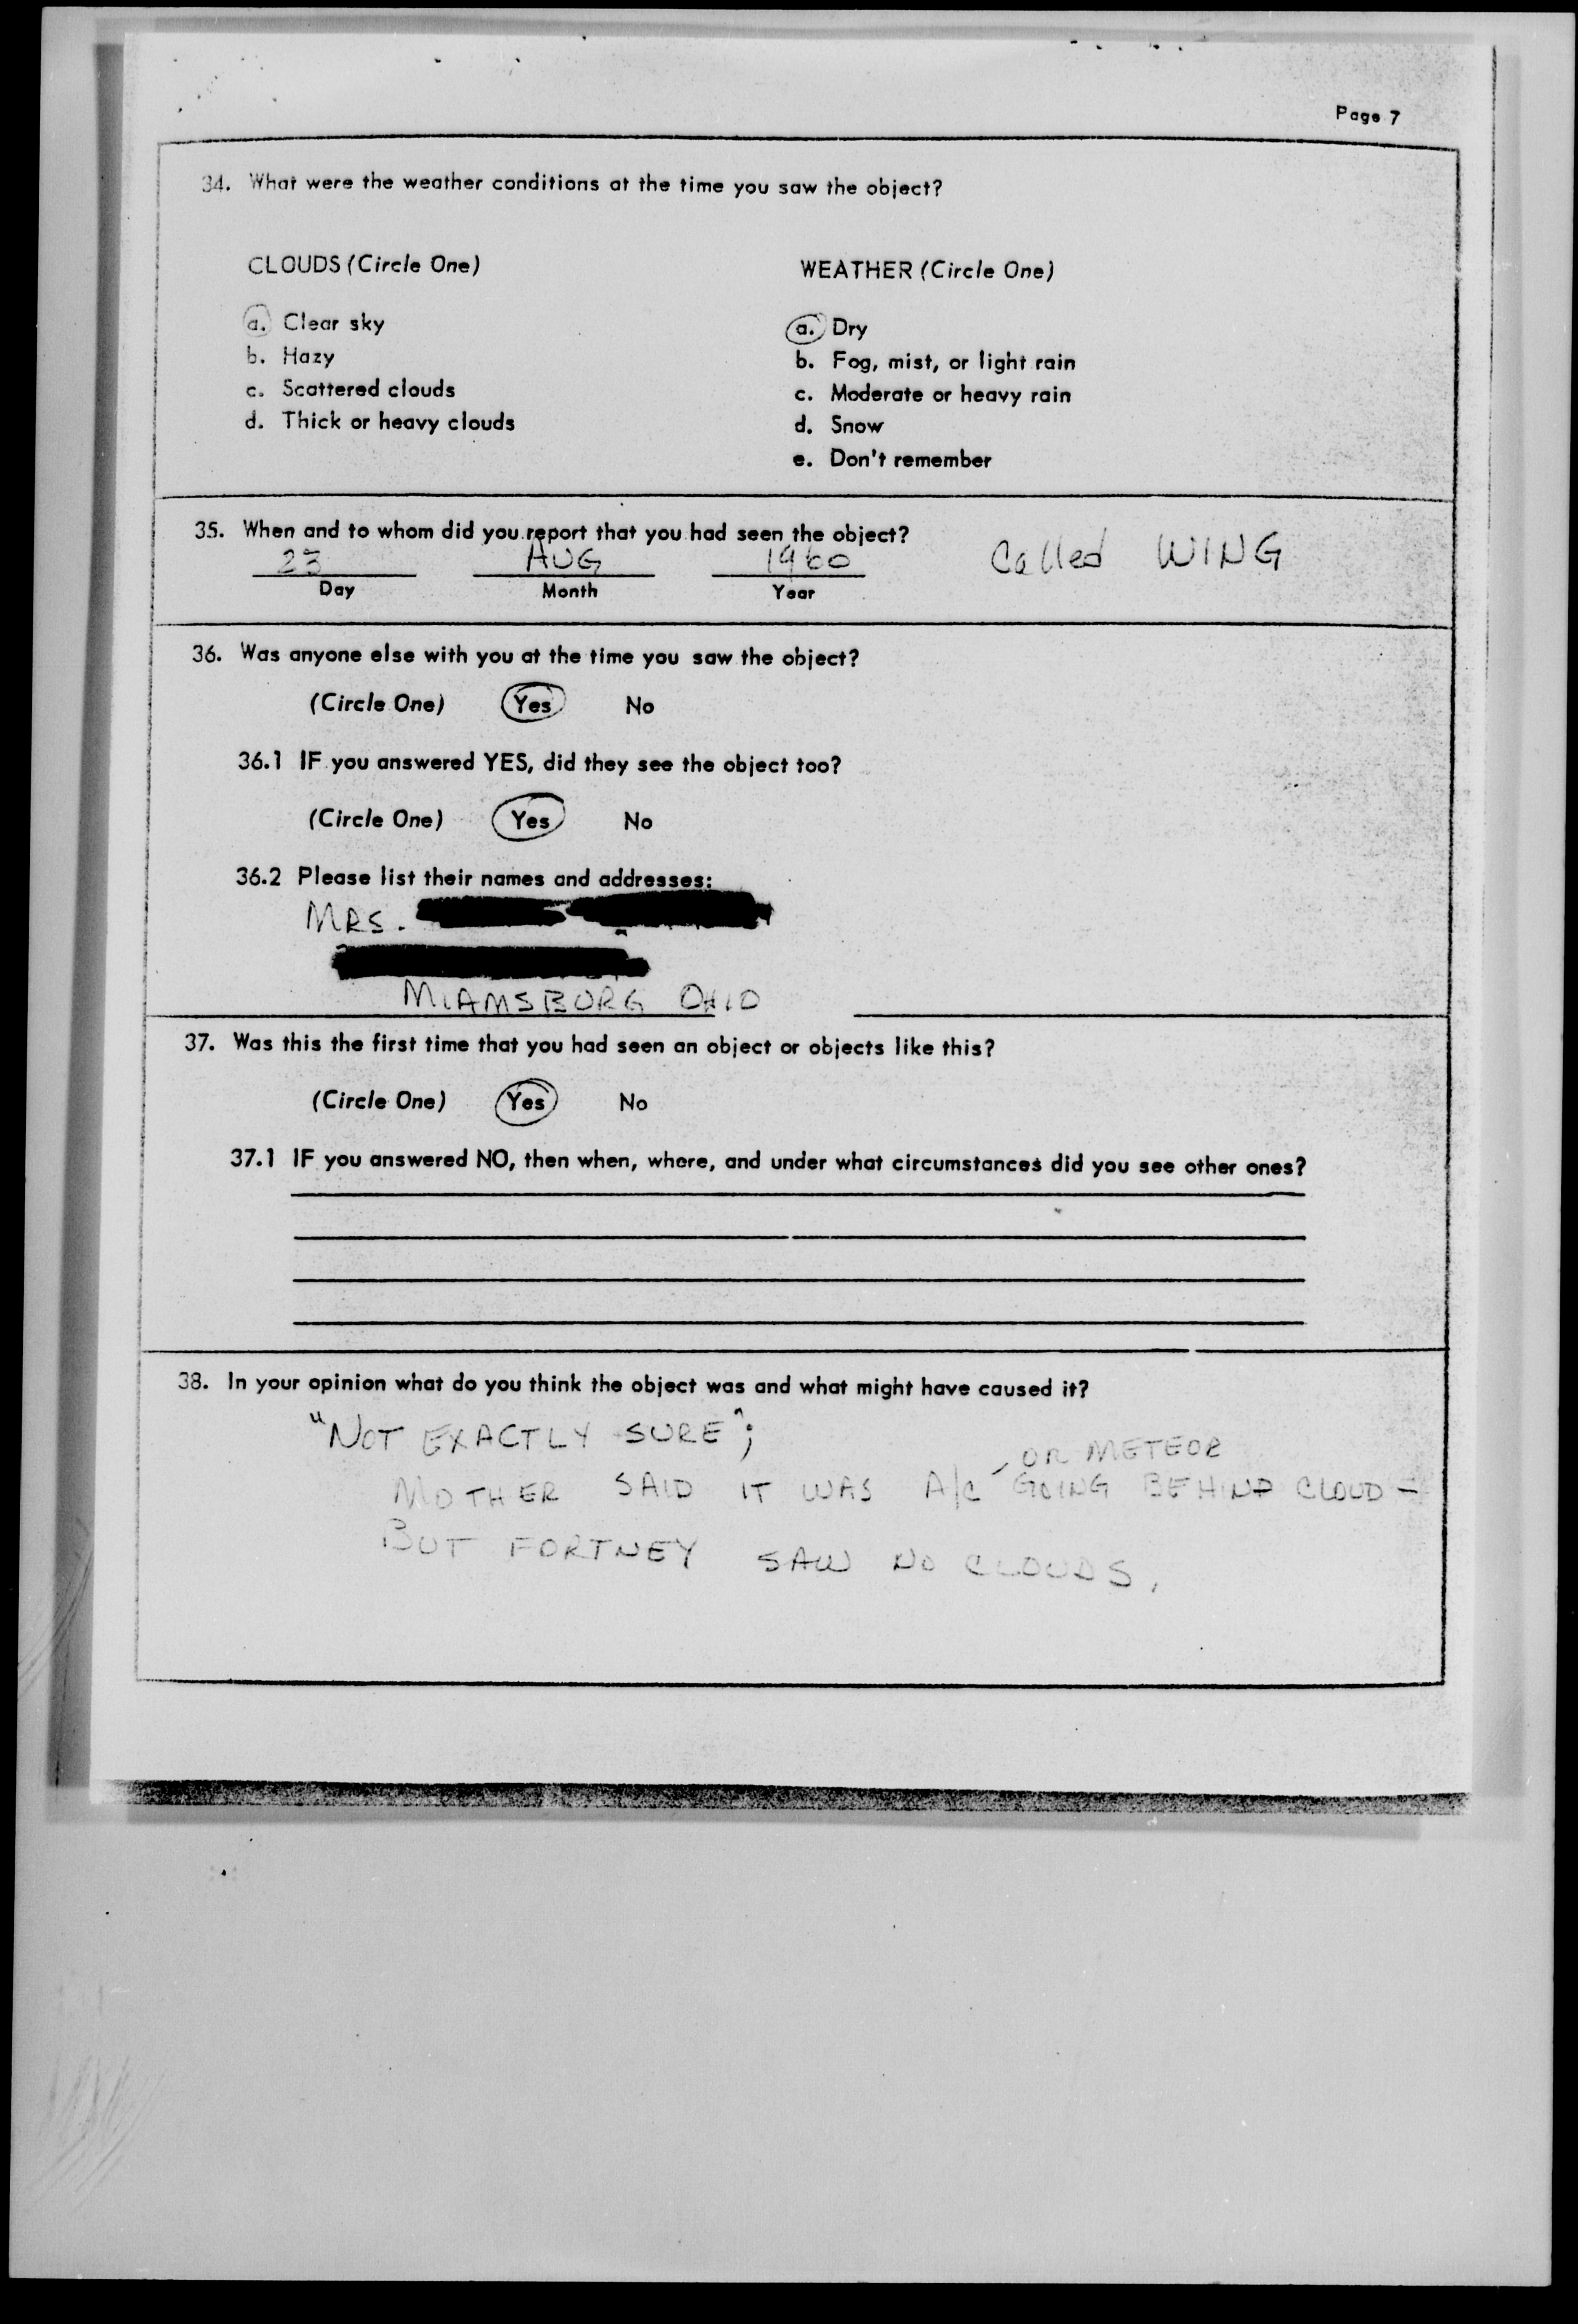 Page 7
34. What were the weather conditions at the time you saw the object?
CLOUDS (Circle One)
a. Clear sky
b. Hazy
c. Scattered clouds
d. Thick or heavy clouds
WEATHER (Circle One)
a. Dry
b. Fog, mist, or light rain
c. Moderate or heavy rain
d. Snow
e. Don't remember
35. When and to whom did you report that you had seen the object?
23 AUG 1960 Called WING
Day Month Year
36. Was anyone else with you at the time you saw the object?
(Circle One) Yes No
36.1 IF you answered YES, did they see the object too?
(Circle One) Yes No
36.2 Please list their names and addresses:
MRS.
MIAMSBURG OHIO
37. Was this the first time that you had seen an object or objects like this?
(Circle One) Yes No
37.1 IF you answered NO, then when, where, and under what circumstances did you see other ones?
38. In your opinion what do you think the object was and what might have caused it?
"NOT EXACTLY SURE";
OR METEOR
MOTHER SAID IT WAS A/C GOING BEHIND CLOUD -
BUT FORTNEY SAW NO CLOUDS.